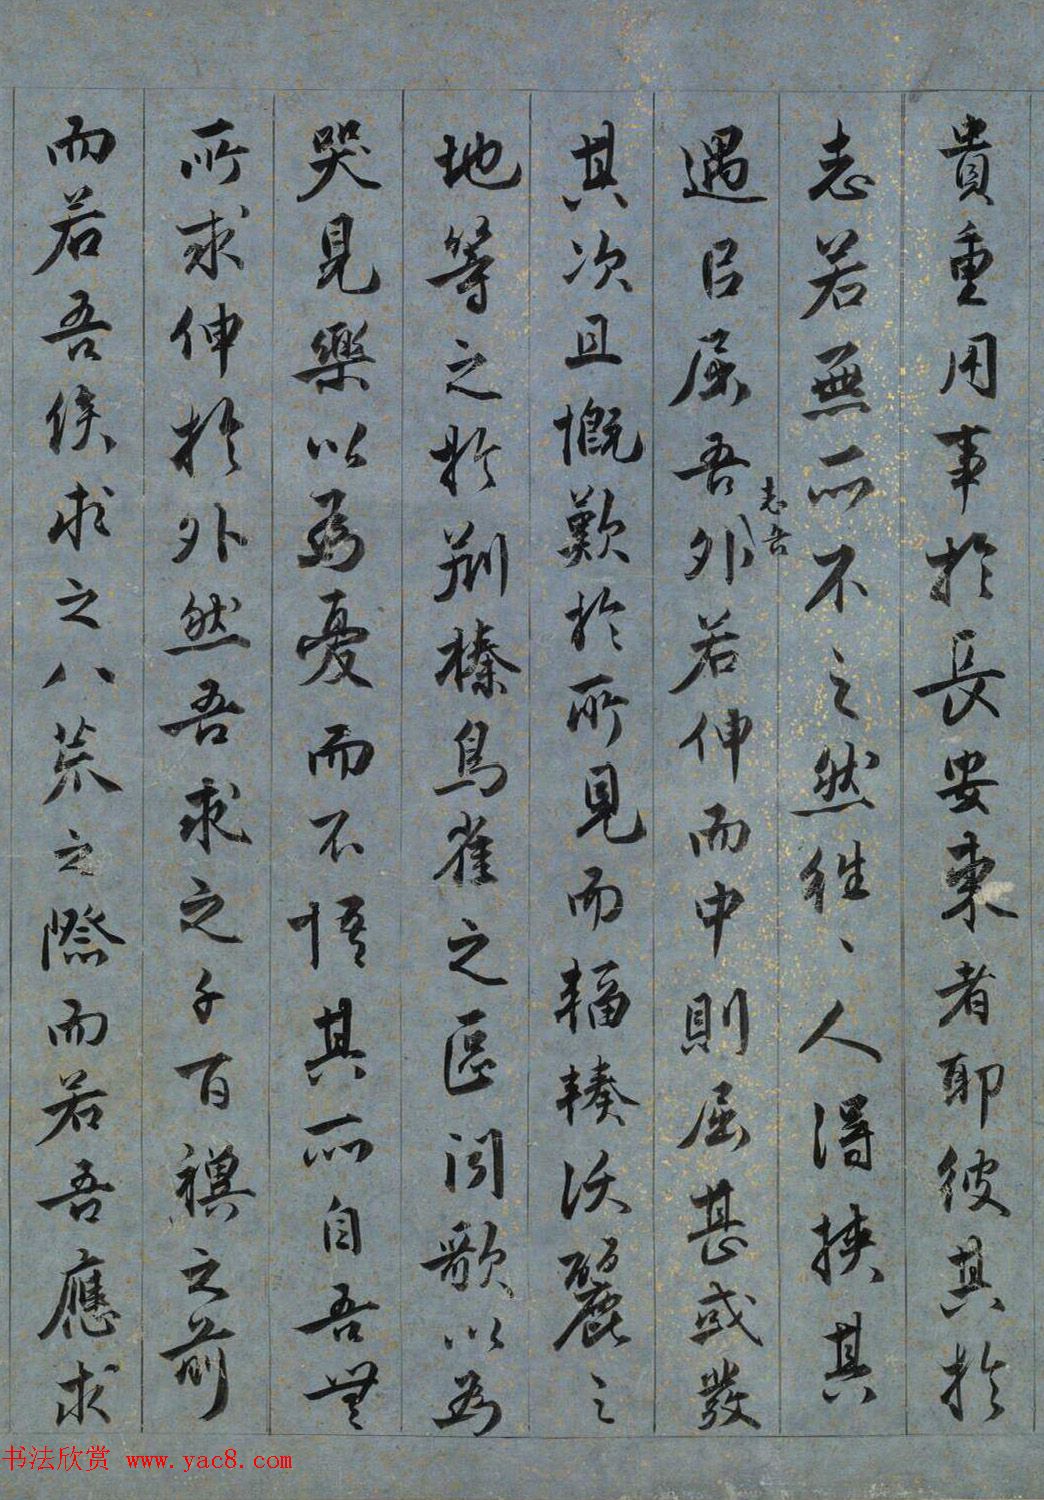 貴重用事於長安東者耶彼其於
志若無所不之然往〻人得挾其
遇以屈吾外若伸而中則屈甚或發
志吾
其次且慨歎於所見而輻輳沃麗之
地等之於荆榛鳥雀之區聞歌以為
哭見樂以為憂而不悟其所自吾無
所求伸於外然吾求之千百禩之前
而若吾俟求之八荒之際而若吾應求
书法欣赏 www.yac8.com